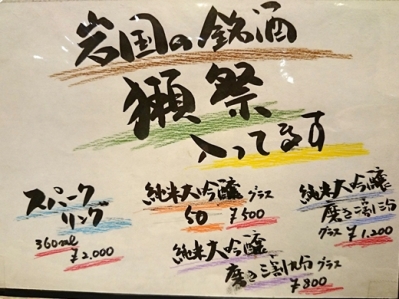 岩国の銘酒
獺祭
入ってます
スパーク
リング
360ml
¥2,000
純米大吟醸 グラス
50 ¥500
純米大吟醸
磨き三割九分 グラス
¥800
純米大吟醸
磨き二割三分
グラス ¥1,200